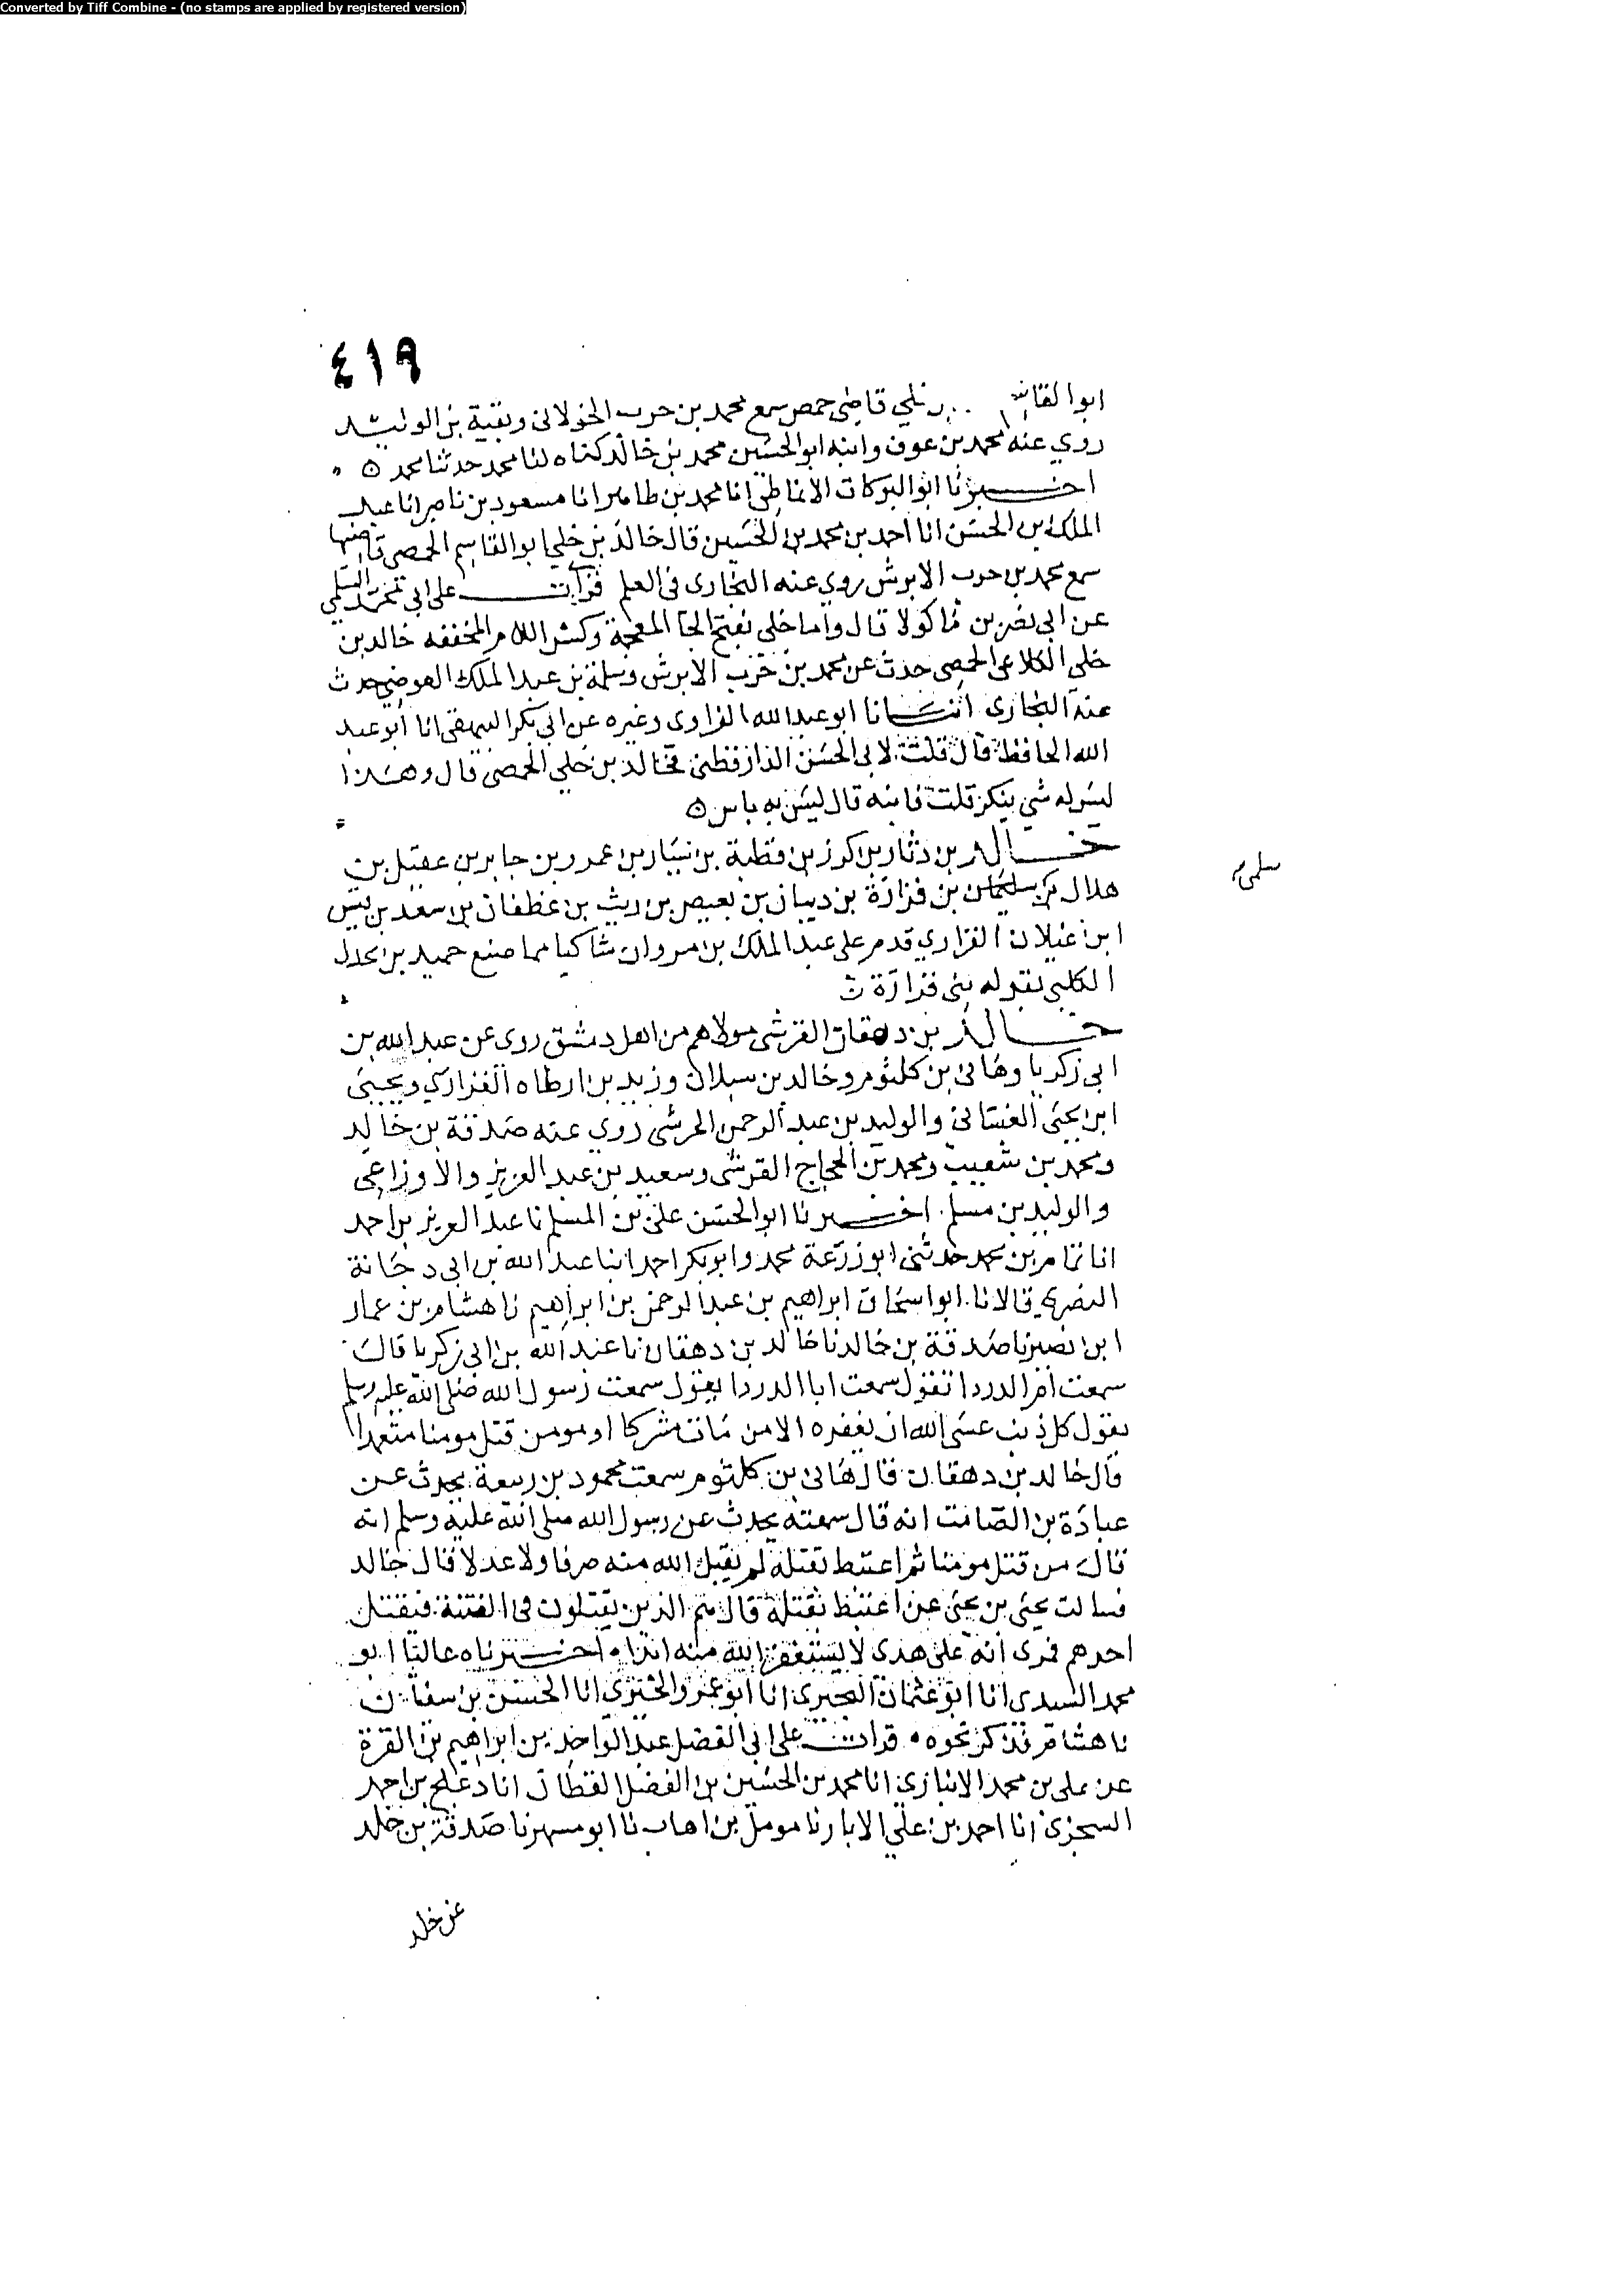 Converted by Tiff Combine - (no stamps are applied by registered version)
٤١٩
ابو القاسم خلي قاضي حمص سمع محمد بن حرب الخولاني وبقية بن الوليد
روي عنه محمد بن عوف وابنه ابو الحسين محمد بن خالد كناه لنا محمد حدثنا محمد ه
اخبرنا ابو البركات الانماطي انا محمد بن طاهر انا مسعود بن ناصر انا عبد
الملك بن الحسن انا احمد بن محمد بن الحسين قال خالد بن خلي ابو القاسم الحمصي قاضيها
سمع محمد بن حرب الابرش روي عنه البخاري في العلم قرات على ابي محمد السلمي
عن ابي نصر بن ماكولا قال واما خلي بفتح الخا المعجمة وكسر اللام المخففه خالد بن
خلي الكلاعي الحمصي حدث عن محمد بن حرب الابرش وسلمة بن عبد الملك العوضي حدث
عنه البخاري انبانا ابو عبد الله الفراوي وغيره عن ابي بكر البيهقي انا ابو عبد
الله الحافظ قال قلت لابي الحسن الدارقطني فخالد بن خلي الحمصي قال وهذا
ليس له شي ينكر قلت فابنه قال ليس به باس ه
خالد بن دثار بن كرز بن قطبة بن سيار بن عمرو بن جابر بن عقيل بن
هلال بن بن فزارة بن ديبان بن بغيض بن ريث بن غطفان بن سعد بن قيس
سلمى
ابن عيلان الفزاري قدم على عبد الملك بن مروان شاكيا مما صنع حميد بن بحدل
الكلبي بقوله بني فزارة
خالد بن دهقان القرشي مولاهم من اهل دمشق روى عن عبد الله بن
ابي زكريا وهاني بن كلثوم وخالد بن سبلان وزيد بن ارطاه الفزاري ويحيى
ابن يحيى الغساني والوليد بن عبد الرحمن الجرشي روي عنه صدقة بن خالد
ومحمد بن شعيب ومحمد بن الحجاج القرشي وسعيد بن عبد العزيز والاوزاعي
والوليد بن مسلم. اخبرنا ابو الحسن علي بن المسلم نا عبد العزيز بن احمد
انا تمام بن محمد حدثني ابو زرعة محمد وابو بكر احمد ابنا عبد الله بن ابي دجانة
النصري قالا نا ابو اسحاق ابراهيم بن عبد الرحمن بن ابراهيم نا هشام بن عمار
ابن نصير نا صدقة بن خالد نا خالد بن دهقان نا عبد الله بن ابي زكريا قال
سمعت ام الدردا تقول سمعت ابا الدردا يقول سمعت رسول الله صلى الله عليه وسلم
يقول كل ذنب عسى الله ان يغفره الا من مات مشركا او مومن قتل مومنا متعمدا
قال خالد بن دهقان قال هاني بن كلثوم سمعت محمود بن ربيعة يحدث عن
عبادة بن الصامت انه قال سمعته يحدث عن رسول الله صلى الله عليه وسلم انه
قال من قتل مومنا ثم اعتبط بقتله لم يقبل الله منه صرفا ولا عدلا قال خالد
فسالت يحيى بن يحيى عن اعتبط بقتله قال هم الذين يقتلون في الفتنة فيقتل
احدهم فيرى انه على هدى لا يستغفر الله منه ابدا. اخبرناه عاليا ابو
محمد السيدي انا ابو عثمان البحيري انا ابو عمرو الحيري انا الحسن بن سفيان
نا هشام فذكر نحوه. قرات على ابي الفضل عبد الواحد بن ابراهيم بن القرة
عن علي بن محمد الانباري انا محمد بن الحسين بن الفضل القطان انا دعلج بن احمد
السجزي انا احمد بن علي الابار نا مومل بن اهاب نا ابو مسهر نا صدقة بن خلد
عن خلد